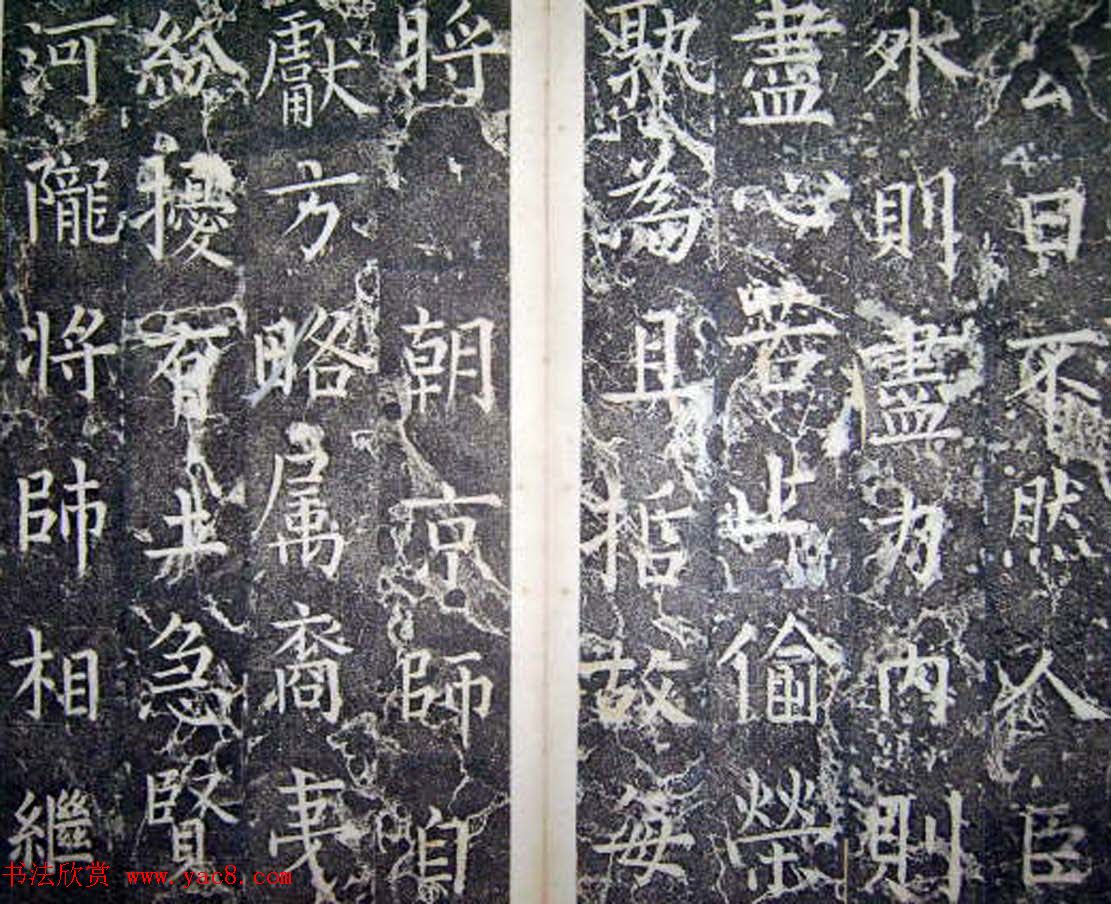 公曰不然人臣
外則盡力內則
盡心苦此偷榮
孰為且哲故每
將朝京師自
獻方略属裔夷
紛擾有土急賢
河隴將師相繼
书法欣赏 www.yac8.com